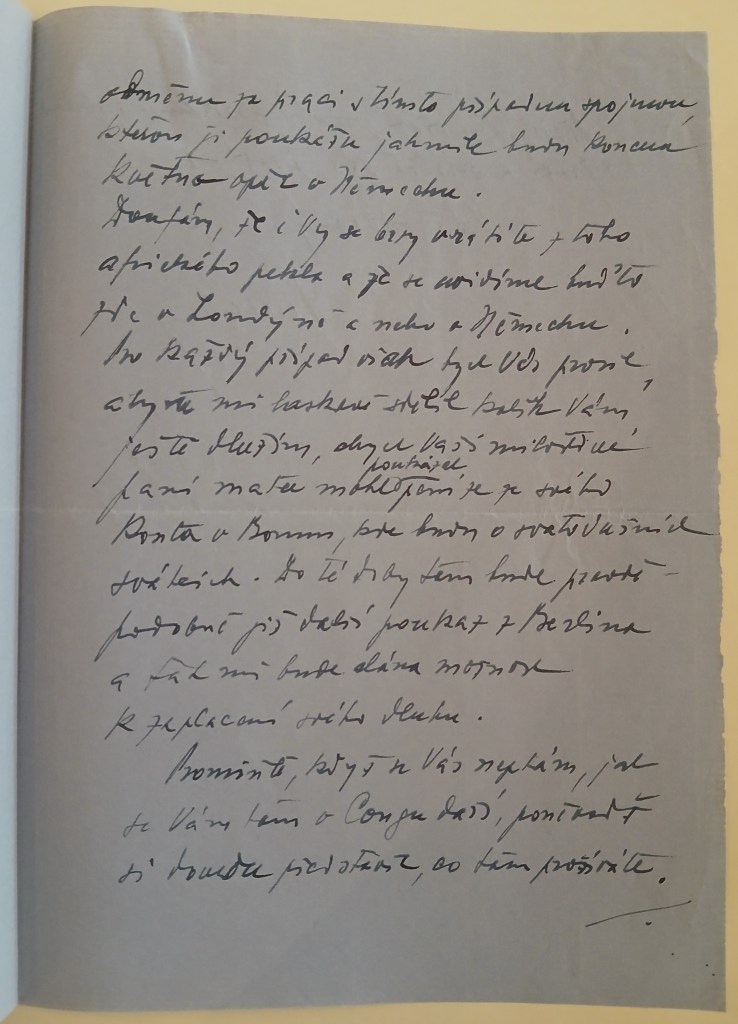 odměnu za práci s tímto případem spojenou,
kterou ji poukážu jakmile budu koncem
května opět v Německu.
Doufám, že i Vy se brzy vrátíte z toho
afrického pekla a že se uvidíme buď to
zde v Londýně a nebo v Německu.
Pro každý případ však bych Vás prosil,
abyste mi laskavě sdělil kolik Vám
ještě dlužím, abych Vaší milostivé
paní matce mohl poukázat peníze ze svého
konta v Bonnu, kde budu o svatodušních
svátcích. Do té doby tam bude pravdě-
podobně již další poukaz z Berlina
a tak mi bude dána možnost
k zaplacení svého dluhu.
Promiňte, když se Vás neptám, jak
se Vám tam v Congu daří, poněvadž
si dovedu představit, co tam prožíváte.